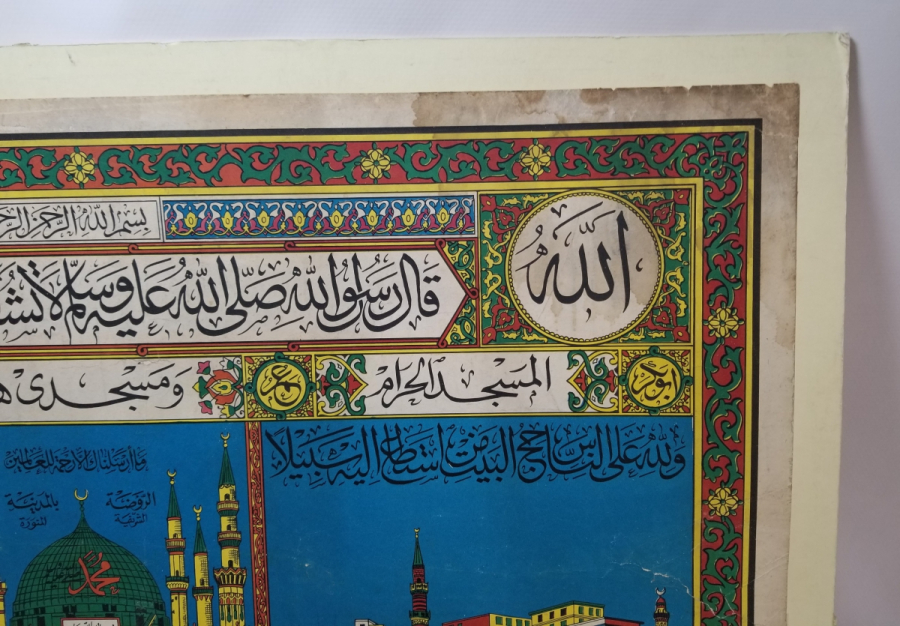 بسم الله الرحمن الرحيم
الله
قال رسول الله صلى الله عليه وسلم لا تشد
المسجد الحرام
ومسجدي
عمر
ولله على الناس حج البيت من استطاع اليه سبيلا
وما أرسلناك الا رحمة للعالمين
الروضة الشريفة
بالمدينة المنورة
محمد